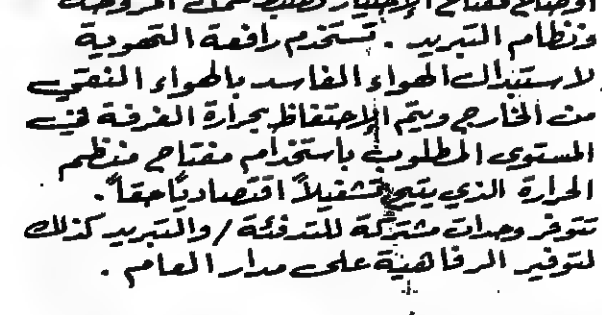 أوضاع مفتاح الإختيار لضبط عمل المروحة
ونظام التبريد . تستخدم رافعة التهوية
لاستبدال الهواء الفاسد بالهواء النقي
من الخارج ويتم الاحتفاظ بحرارة الغرفة في
المستوى المطلوب باستخدام مفتاح منظم
الحرارة الذي يتيح تشغيلاً اقتصادياً حقاً .
تتوفر وحدات مشتركة للتدفئة / والتبريد كذلك
لتوفير الرفاهية على مدار العام .